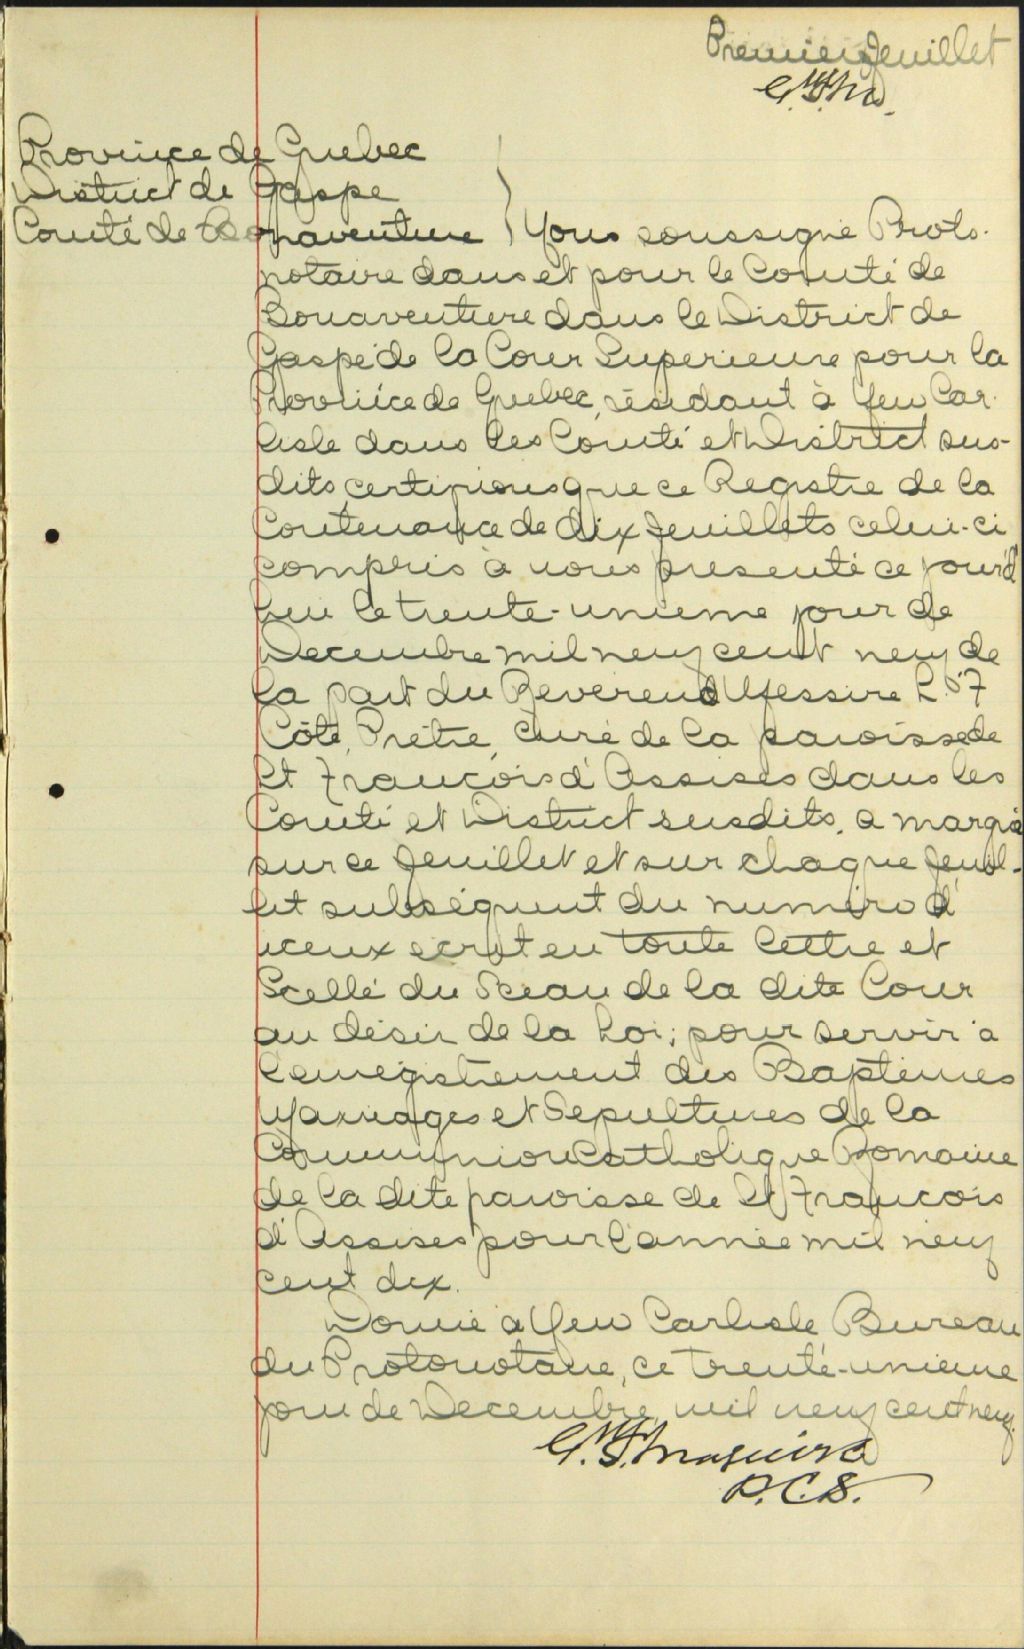 Premier feuillet
G.W.F.M.
Province de Quebec
District de Gaspe
Comté de Bonaventure } Nous soussigne Proto-
notaire dans et pour le Comté de
Bonaventure dans le District de
Gaspé de la Cour Superieure pour la
Province de Quebec, résidant à New Car-
lisle dans les Comté et District sus-
dits, certifions que ce Registre de la
Contenance de dix feuillets celui-ci
compris à nous presenté ce jour d'
hui le trente-unieme jour de
Decembre mil neuf cent neuf de
la part du Reverend Messire L.P.F
Côté, Prêtre, Curé de la paroisse de
St François d'Assises dans les
Comté et District susdits, a margé
sur ce feuillet et sur chaque feuil-
let subséquent du numéro d'
iceux ecrit en toute lettre et
Scellé du Sceau de la dite Cour
au désir de la Loi; pour servir à
l'enregistrement des Baptêmes
Mariages et Sepultures de la
Communion Catholique Romaine
de la dite paroisse de St François
d'Assises pour l'année mil neuf
cent dix.
Donné à New Carlisle Bureau
du Protonotaire, ce trente-unieme
jour de Decembre, mil neuf cent neuf.
G.W.F. Maguire
P.C.S.